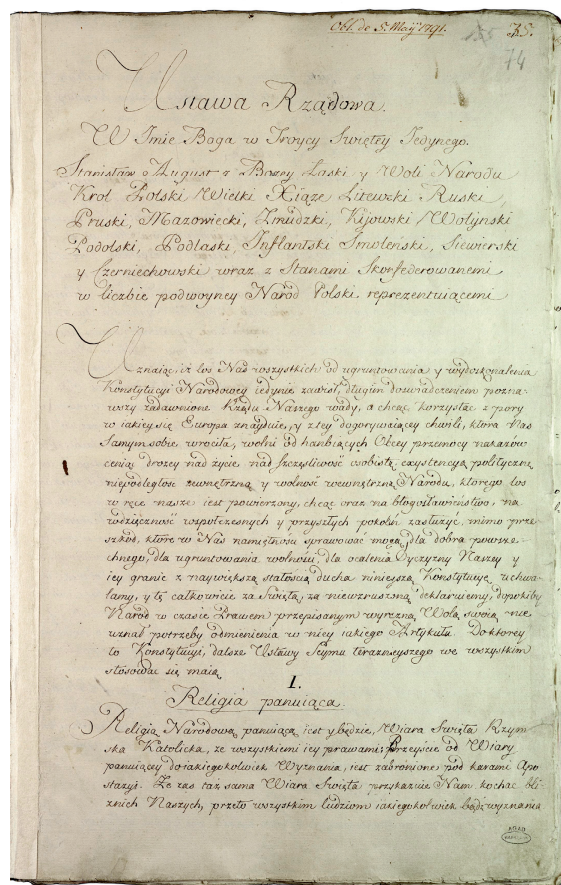 Obl. de 5. Maÿ 1791.
74
Ustawa Rządowa.
W Imie Boga w Troycy Swiętey Jedynego.
Stanisław August z Bożey Łaski y Woli Narodu
Krol Polski Wielki Xiąże Litewski Ruski,
Pruski, Mazowiecki, Żmudzki, Kijowski Wołyński
Podolski, Podlaski, Inflantski Smolenski, Siewierski
y Czerniechowski wraz z Stanami Skonfederowanemi
w liczbie podwoyney Naród Polski reprezentuiącemi
Uznaiąc, iż los Nas wszystkich od ugruntowania y wydoskonalenia
Konstytucyi Narodowey iedynie zawisł, długim doswiadczeniem pozna-
wszy zadawnione Rządu Naszego wady, a chcąc korzystac z pory
w iakiey się Europa znayduie, y z tey dogorywaiącey chwili, ktora Nas
samym sobie wrociła, wolni od hanbiących Obcey przemocy nakazów
ceniąc drożey nad życie, nad szczęsliwość osobistą, exystencyą polityczną
niepodległosc zewnętrzną y wolność wewnętrzną Narodu, ktorego los
w ręce nasze iest powierzony, chcąc oraz na błogosławieństwo, na
wdzięczność wspołczesnych y przyszłych pokoleń zasłużyć, mimo prze-
szkod, ktore w Nas namiętnosci sprawować mogą, dla dobra powsze-
chnego, dla ugruntowania wolnosci, dla ocalenia Oyczyzny Naszey y
iey granic z naywiększą stałością ducha ninieyszą Konstytucyę uchwa-
lamy, y tę całkowicie za Swiętą, za niewzruszoną deklaruiemy, dopokiby
Naród w czasie Prawem przepisanym wyrazną Wolą swoią nie
uznał potrzeby odmienienia w niey iakiego Artykułu. Do ktorey
to Konstytucyi, dalsze Ustawy Seymu teraznieyszego we wszystkim
stosowac się maią.
1.
Religia panuiąca.
Religią Narodową panuiącą iest y będzie, Wiara Swięta Rzym-
ska Katolicka, ze wszystkiemi iey prawami; Przeyście od Wiary
panuiącey do iakiegokolwiek Wyznania, iest zabronione pod karami Apo
stazyi. Że zas taż sama Wiara Swięta przykazuie Nam kochac bli
znich Naszych, przeto wszystkim ludziom iakiegokolwiek bądź wyznania
AGAD